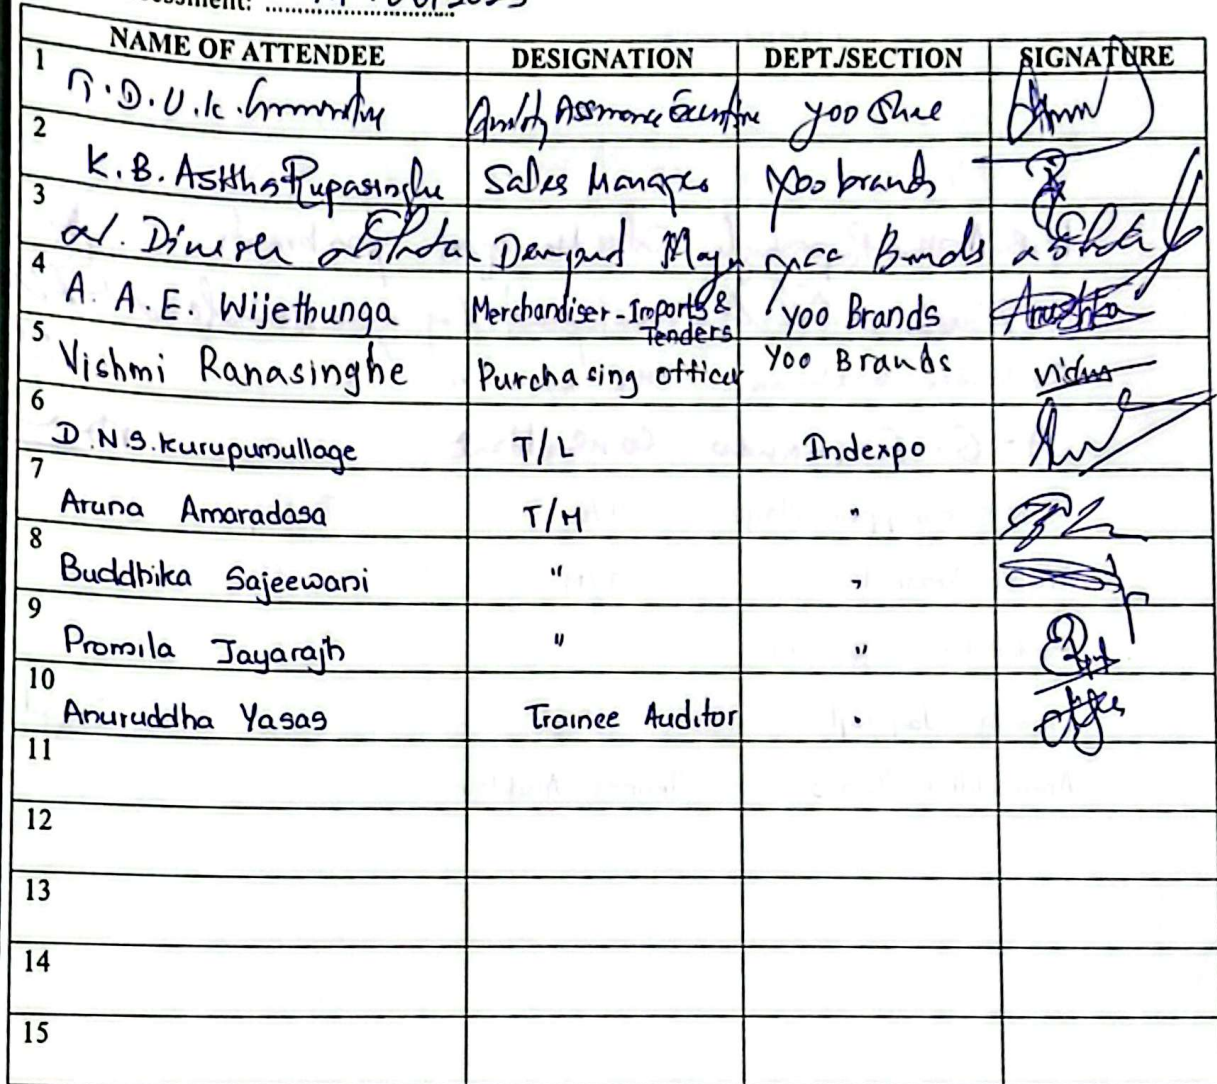 NAME OF ATTENDEE DESIGNATION DEPT./SECTION SIGNATURE
1 D.U.K. Assurance Executive Yoo
2 K.B. Rupasinghe Sales Manager Yoo brands
3 Dinesh Brands
4 A. A. E. Wijethunga Merchandiser - Imports & Tenders Yoo Brands
5 Vishmi Ranasinghe Purchasing officer Yoo Brands
6 D.N.S. Kurupumullage T/L Indexpo
7 Aruna Amaradasa T/M "
8 Buddhika Sajeewani " "
9 Promila Jayarajh " "
10 Anuruddha Yasas Trainee Auditor "
11
12
13
14
15